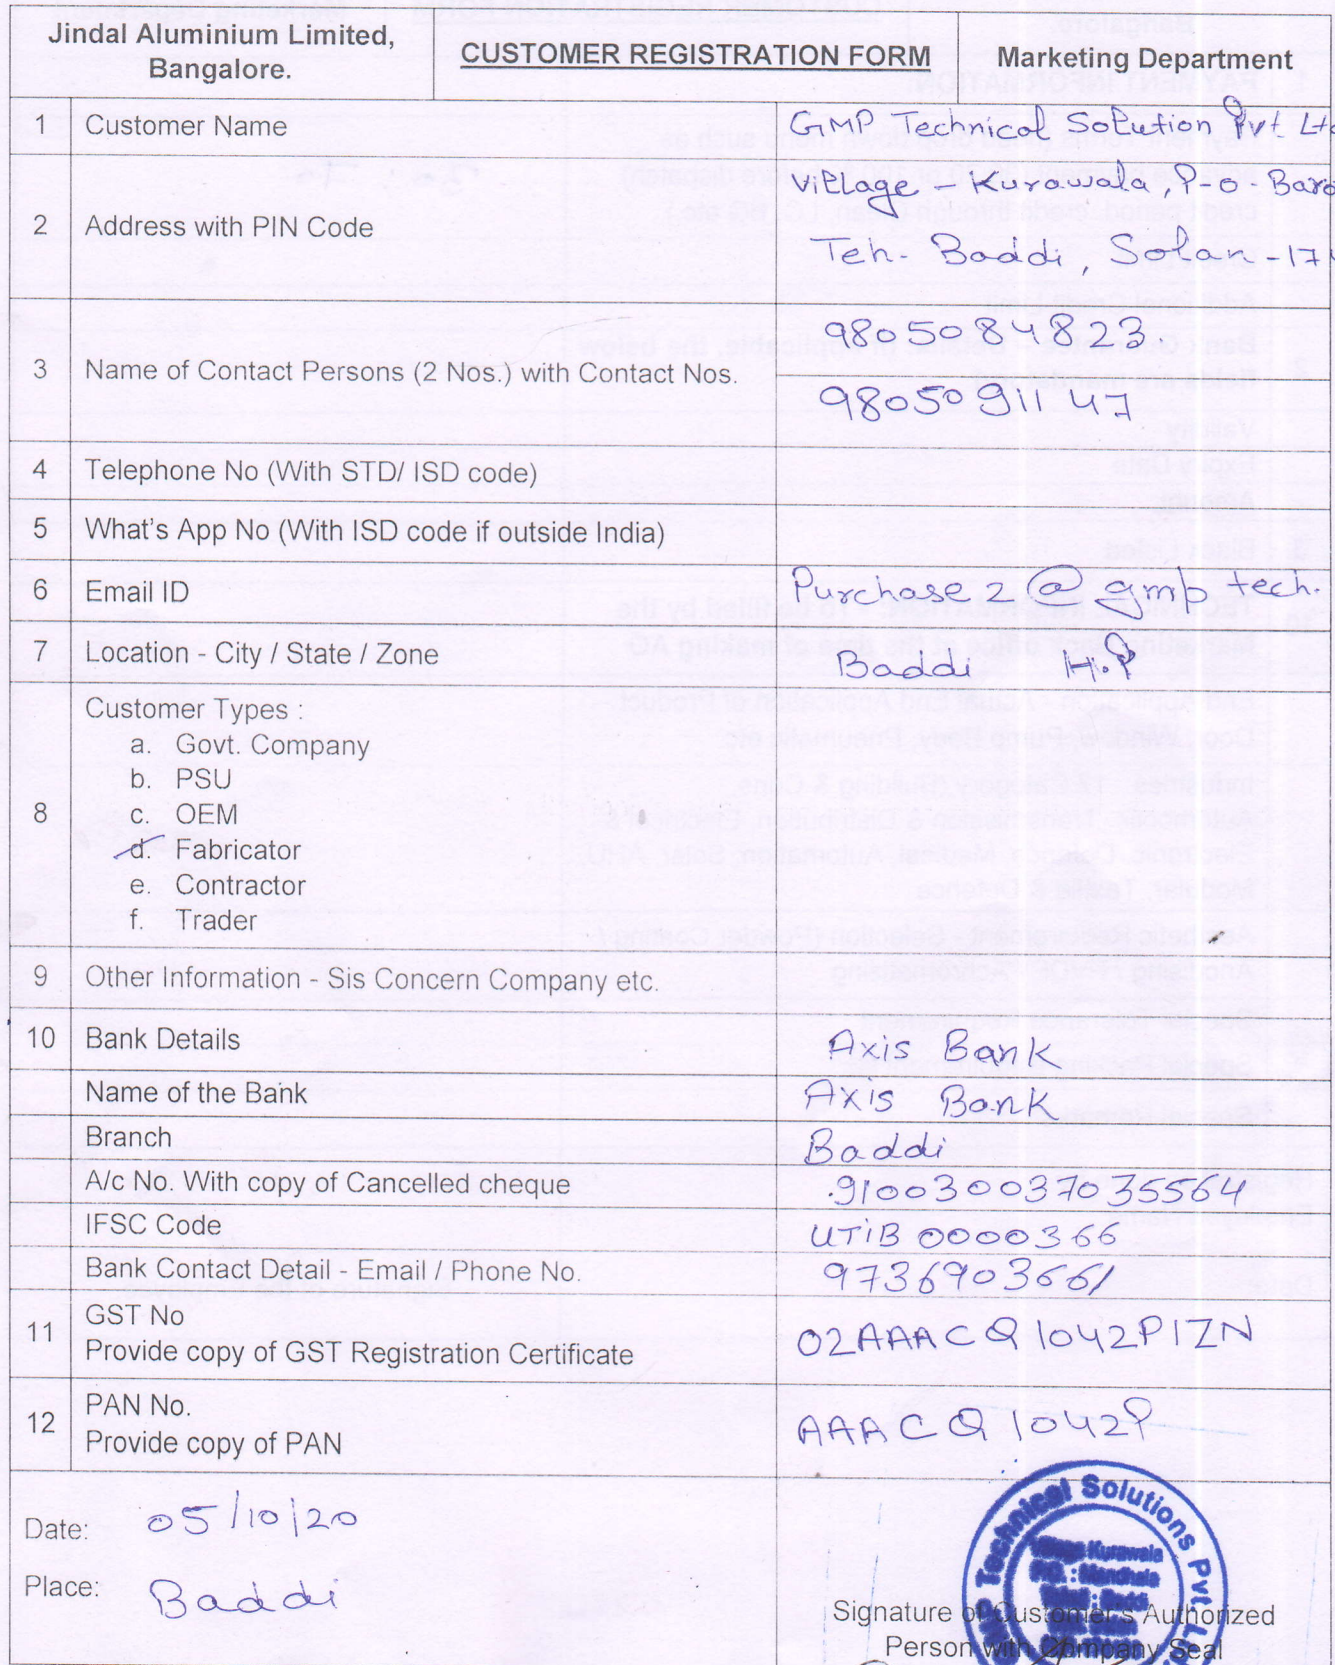 Jindal Aluminium Limited,
Bangalore.
CUSTOMER REGISTRATION FORM
Marketing Department
1 Customer Name GMP Technical Solution Pvt Ltd
2 Address with PIN Code Village - Kurawala, P-o-
Teh- Baddi, Solan -
3 Name of Contact Persons (2 Nos.) with Contact Nos. 9805084823.
9805091147
4 Telephone No (With STD/ ISD code)
5 What's App No (With ISD code if outside India)
6 Email ID Purchase2@gmptech.
7 Location - City / State / Zone Baddi H.P
8 Customer Types :
a. Govt. Company
b. PSU
c. OEM
d. Fabricator
e. Contractor
f. Trader
9 Other Information - Sis Concern Company etc.
10 Bank Details Axis Bank
Name of the Bank Axis Bank
Branch Baddi
A/c No. With copy of Cancelled cheque 910030037035564
IFSC Code UTIB0000366
Bank Contact Detail - Email / Phone No. 9736903661
11 GST No
Provide copy of GST Registration Certificate 02AAACQ1042P1ZN
12 PAN No.
Provide copy of PAN AAACQ1042P
Date: 05/10/20
Place: Baddi
Technical Solutions Pvt. Ltd
Village Kurawala
P.O. : Mandhala
Baddi
Signature of Customer's Authorized
Person with Company Seal